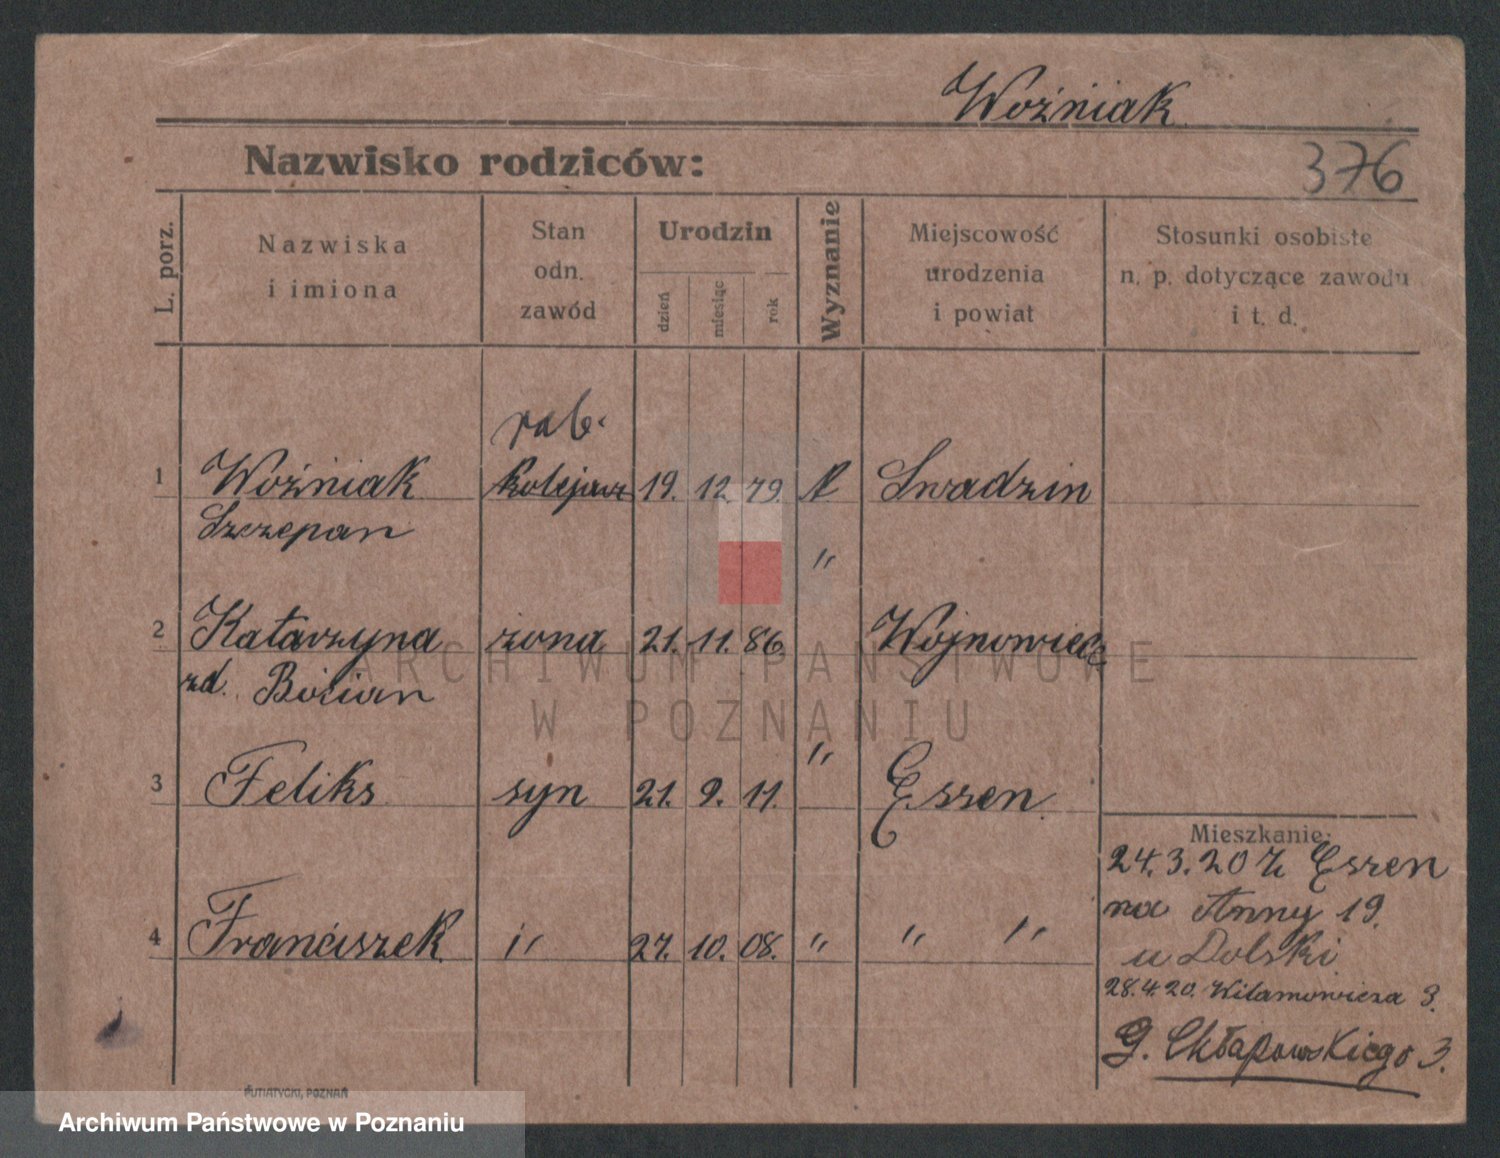 Woźniak
Nazwisko rodziców:
376
L. porz.
Nazwiska
i imiona
Stan
odn.
zawód
Urodzin
dzień
miesiąc
rok
Wyznanie
Miejscowość
urodzenia
i powiat
Stosunki osobiste
n. p. dotyczące zawodu
i t. d.
rab.
1 Woźniak kolejarz 19. 12. 79. k Swadzin
Szczepan
"
2 Katarzyna żona 21. 11. 86. Wojnowice
zd. Bocian
"
3 Feliks syn 21. 9. 11. Essen
4 Franciszek " 27. 10. 08. " " "
Mieszkanie:
24.3.20 z Essen
na Anny 19.
u Dolski
28.4.20. Wilamowicza 3.
G. Chłapowskiego 3.
ARCHIWUM PAŃSTWOWE
W POZNANIU
PUTIATYCKI, POZNAŃ
Archiwum Państwowe w Poznaniu